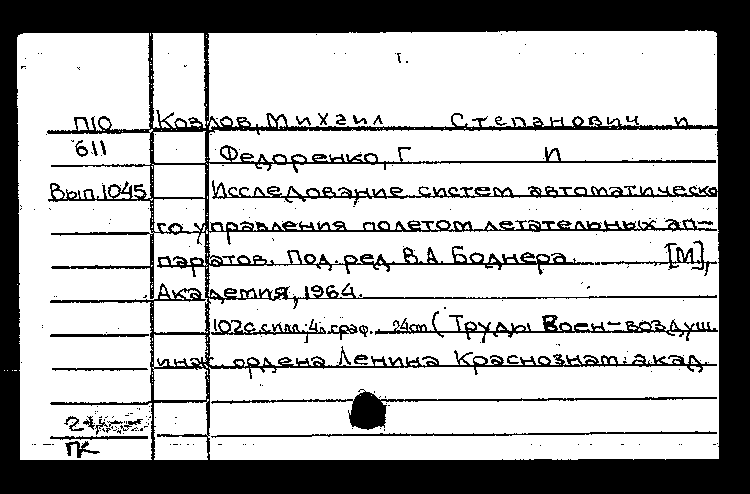 т.
П10 Козлов, Михаил Степанович и
611 Федоренко, Г П
Вып.1045 Исследование систем автоматическо
го управления полетом летательных ап-
паратов. Под. ред. В.А. Боднера. [М],
Академия, 1964.
102с.с илл.; 4л.граф. 24см (Труды Воен-воздуш.
инж. ордена Ленина Краснознам. акад.
24
ПК